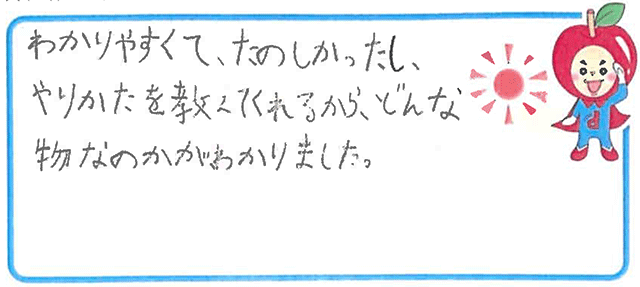 わかりやすくて、たのしかったし、
やりかたを教えてくれるから、どんな
物なのかがわかりました。
d